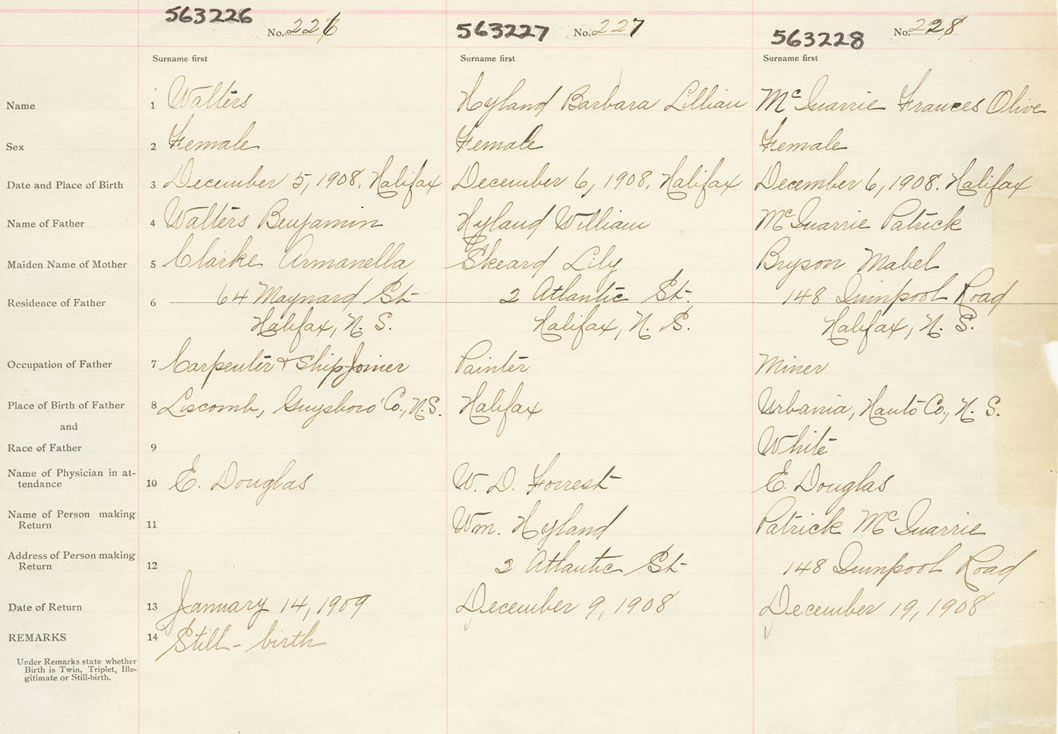 563226 No. 226
563227 No. 227
563228 No. 228
Surname first Surname first Surname first
Name 1 Walters Hyland Barbara Lillian McQuarrie Frances Olive
Sex 2 Female Female Female
Date and Place of Birth 3 December 5, 1908. Halifax December 6, 1908. Halifax December 6, 1908. Halifax
Name of Father 4 Walters Benjamin Hyland William McQuarrie Patrick
Maiden Name of Mother 5 Clarke Armanella Skeard Lily Bryson Mabel
Residence of Father 6 64 Maynard St. 2 Atlantic St. 148 Quinpool Road
Halifax, N. S. Halifax, N. S. Halifax, N. S.
Occupation of Father 7 Carpenter & Ship Joiner Painter Miner
Place of Birth of Father 8 Liscomb, Guysboro' Co., N.S. Halifax Urbania, Hants Co., N. S.
and
Race of Father 9 White
Name of Physician in at-
tendance 10 E. Douglas W. D. Forrest E. Douglas
Name of Person making
Return 11 Wm. Hyland Patrick McQuarrie
Address of Person making
Return 12 2 Atlantic St. 148 Quinpool Road
Date of Return 13 January 14, 1909 December 9, 1908 December 19, 1908
REMARKS 14 Still-birth
Under Remarks state whether
Birth is Twin, Triplet, Ille-
gitimate or Still-birth.